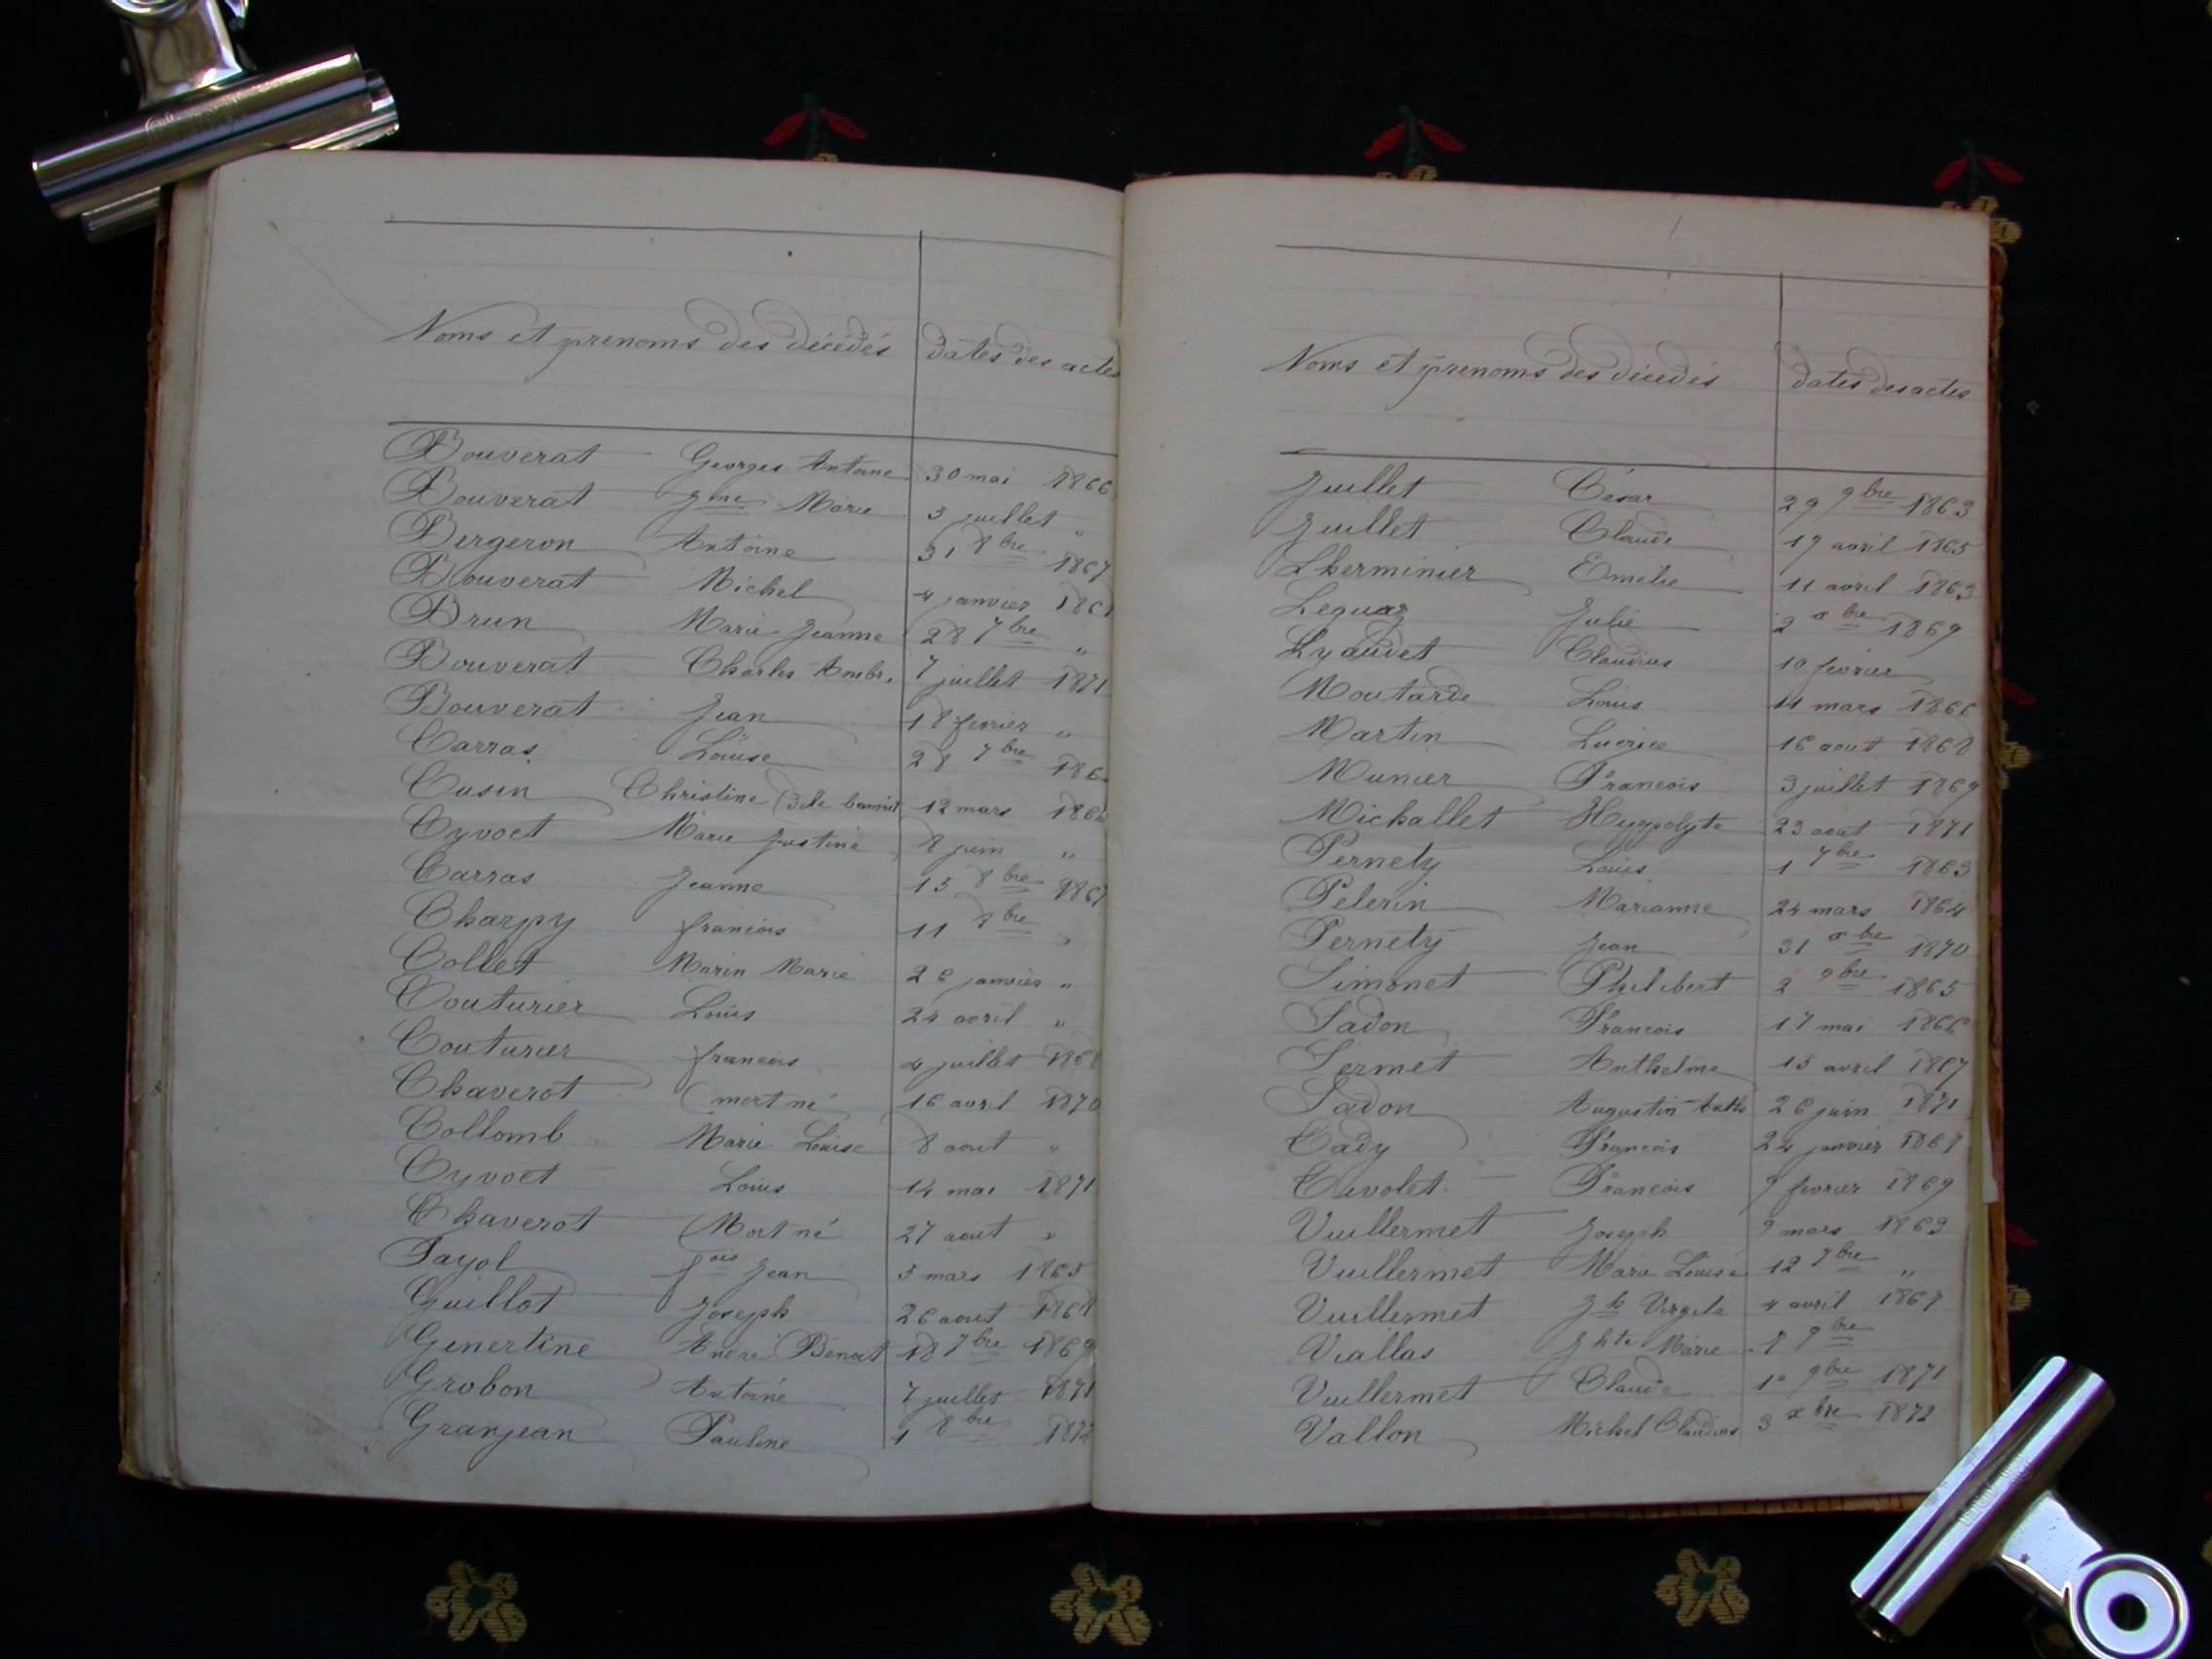 Noms et prenoms des décédés dates des actes
Bouverat Georges Antoine 30 mai 1866
Bouverat Marie 3 juillet "
Bergeron Antoine 31 8bre 1867
Bouverat Michel 4 janvier
Brun Marie Jeanne 28 7bre "
Bouverat Charles Ambr. 7 juillet 1871
Bouverat Jean 18 fevrier "
Carras Louise 28 7bre
Cusin Christine 12 mars 1866
Cyvoct Marie Justine 8 juin "
Carras Jeanne 15 8bre 1867
Charpy francois 11 8bre "
Collet Marin Marie 26 janvier "
Couturier Louis 24 avril "
Couturier francois 4 juillet 1868
Chaverot (mort né 16 avril 1870
Collomb Marie Louise 8 aout "
Cyvoct Louis 14 mai 1871
Chaverot (Mort né 27 aout "
Fayol fois Jean 3 mars 1865
Guillot Joseph 26 aout 1868
Ginertine André Benoit 18 7bre 1869
Grobon Antoine 7 juillet 1871
Granjean Pauline 1 8bre 1872
Noms et prenoms des décédés dates des actes
Juillet César 29 9bre 1863
Juillet Claude 19 avril 1865
Lherminier Emélie 11 avril 1863
Leguaz Julie 2 xbre 1869
Lyaudet Claudius 10 fevrier
Moutarde Louis 11 mars 1866
Martin 16 aout 1868
Munier Francois 3 juillet 1869
Michallet Hyppolyte 23 aout 1871
Pernety Louis 1 7bre 1863
Pelerin Marianne 24 mars 1864
Pernety Jean 31 xbre 1870
Simonet Philibert 2 9bre 1865
Sadon Francois 17 mai 1866
Sermet Anthelme 15 avril 1867
Sadon Augustin Anth 26 juin 1871
Cady Francois 24 janvier 1868
Tavolet Francois 9 fevrier 1869
Vuillermet Joseph 9 mars 1863
Vuillermet Marie Louise 12 7bre "
Vuillermet Jh Virgile 4 avril 1867
Viallas Marie 8 9bre
Vuillermet Claude 1° 9bre 1871
Vallon Michel Claudius 3 xbre 1872